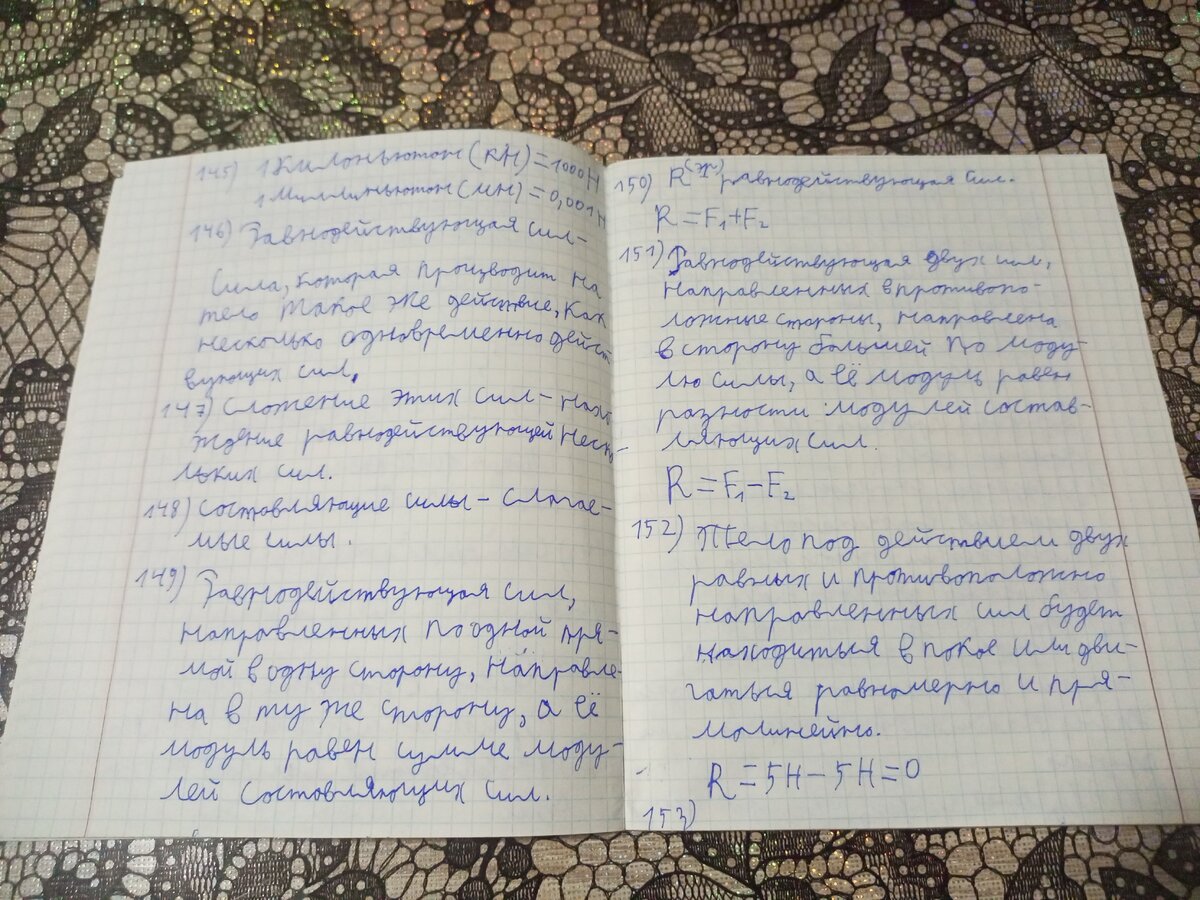 145) 1 Килоньютон (кН) = 1000 Н
1 Миллиньютон (мН) = 0,001 Н
146) Равнодействующая сил-
Сила, которая производит на
тело такое же действие, как
несколько одновременно дейст
вующих сил.
147) Сложение этих сил - нахо
ждение равнодействующей неско-
льких сил.
148) Составляющие силы - слагае-
мые силы.
149) Равнодействующая сил,
направленных по одной пря-
мой в одну сторону, направле-
на в ту же сторону, а её
модуль равен сумме моду-
лей составляющих сил.
150) R равнодействующая сил.
R = F₁ + F₂
151) Равнодействующая двух сил,
направленных в противопо-
ложные стороны, направлена
в сторону большей по моду-
лю силы, а её модуль равен
разности модулей состав-
ляющих сил.
R = F₁ - F₂
152) Тело под действием двух
равных и противоположно
направленных сил будет
находиться в покое или дви-
гаться равномерно и пря-
молинейно.
R = 5Н - 5Н = 0
153)